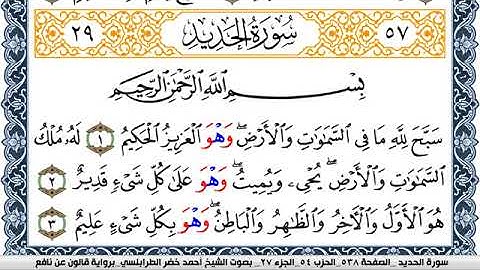 ٢٩ سُورَةُ الْحَدِيدِ ٥٧
بِسْمِ اللَّهِ الرَّحْمَٰنِ الرَّحِيمِ
سَبَّحَ لِلَّهِ مَا فِي السَّمَٰوَٰتِ وَالْأَرْضِۖ وَهْوَ الْعَزِيزُ الْحَكِيمُ ١ لَهُۥ مُلْكُ
السَّمَٰوَٰتِ وَالْأَرْضِۖ يُحْيِۦ وَيُمِيتُۖ وَهْوَ عَلَىٰ كُلِّ شَيْءٍ قَدِيرٌ ٢
هُوَ الْأَوَّلُ وَالْآخِرُ وَالظَّٰهِرُ وَالْبَاطِنُۖ وَهْوَ بِكُلِّ شَيْءٍ عَلِيمٌ ٣
سورة الحديد _ الصفحة ٥٣٨_ الحزب ٥٤_ الجزء ٢٧_ بصوت الشيخ أحمد خضر الطرابلسي_ برواية قالون عن نافع